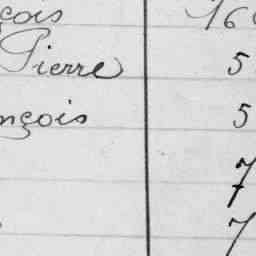 çois 16
Pierre 5
nçois 5
7
7